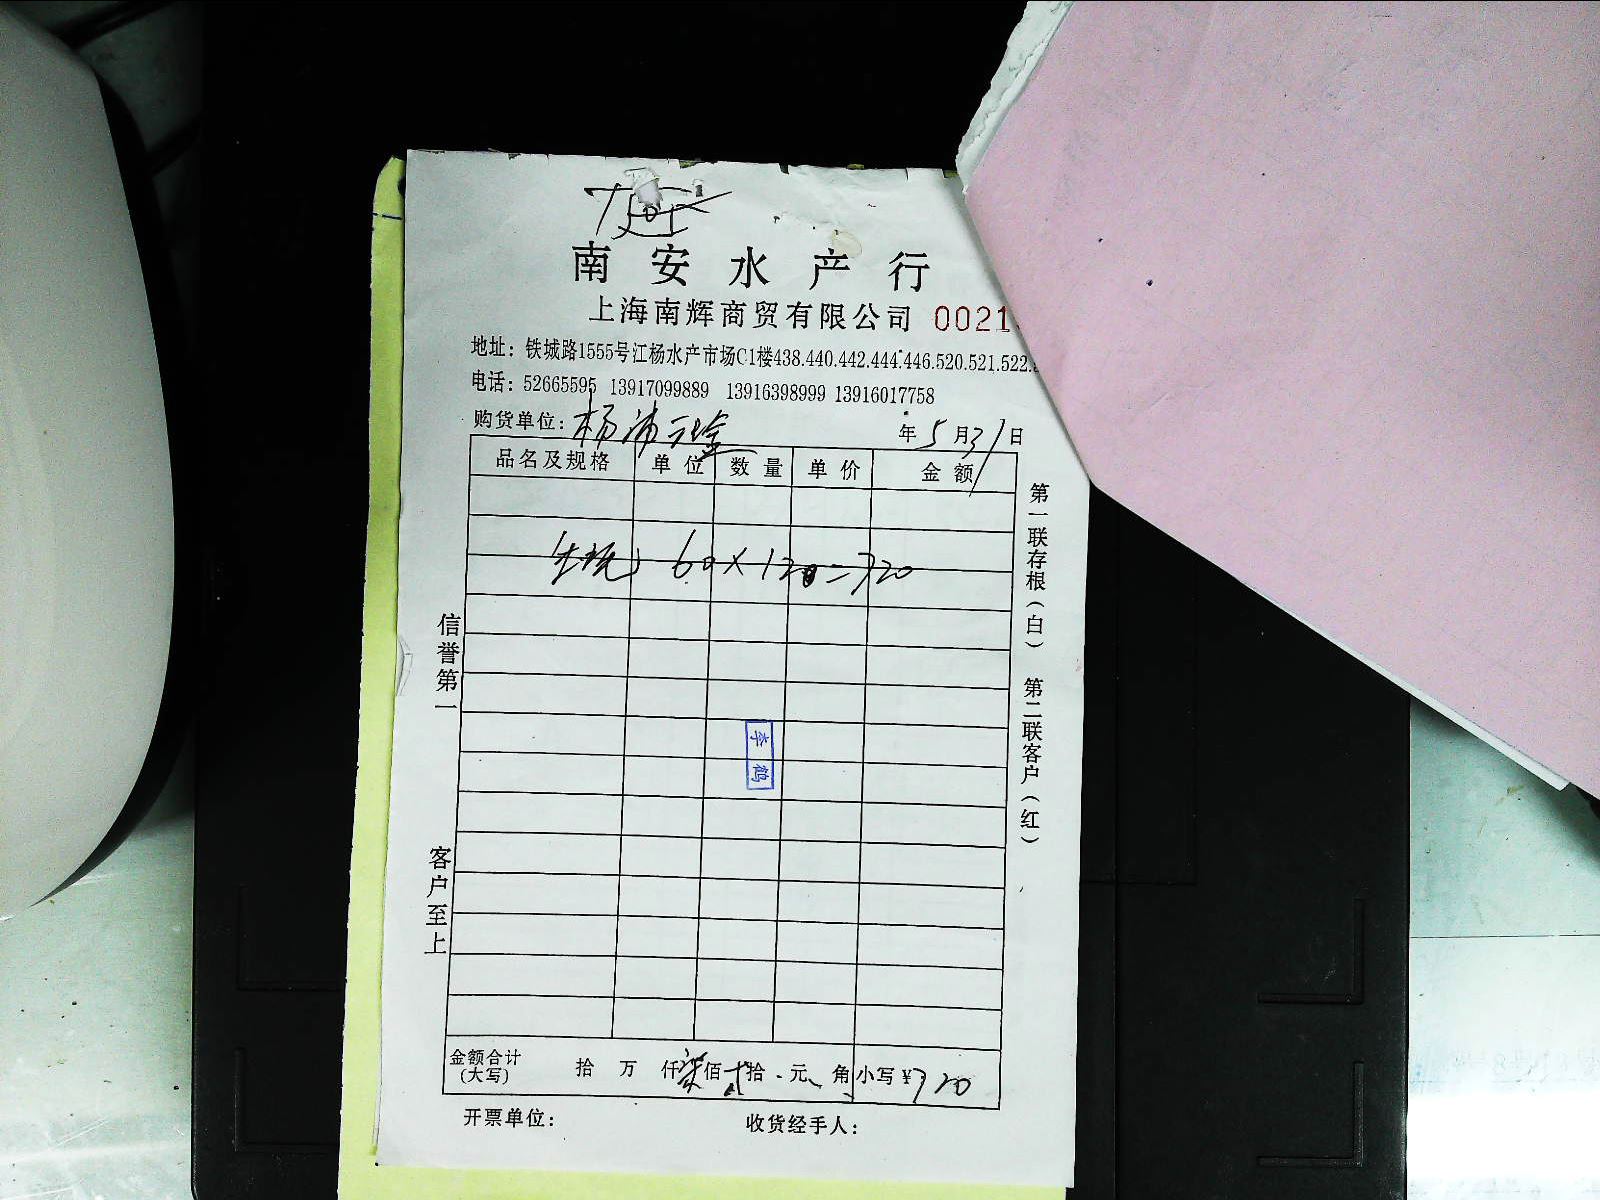 南安水产行
上海南辉商贸有限公司 0021
地址：铁城路1555号江杨水产市场C1楼438.440.442.444.446.520.521.522.
电话：52665595 13917099889 13916398999 13916017758
购货单位：杨浦 年5月31日
品名及规格 单位 数量 单价 金额
60×12=720
李鹤
信誉第一
客户至上
第一联存根（白） 第二联客户（红）
金额合计（大写） 拾 万 仟柒佰贰拾 元 角 小写¥720
开票单位： 收货经手人：